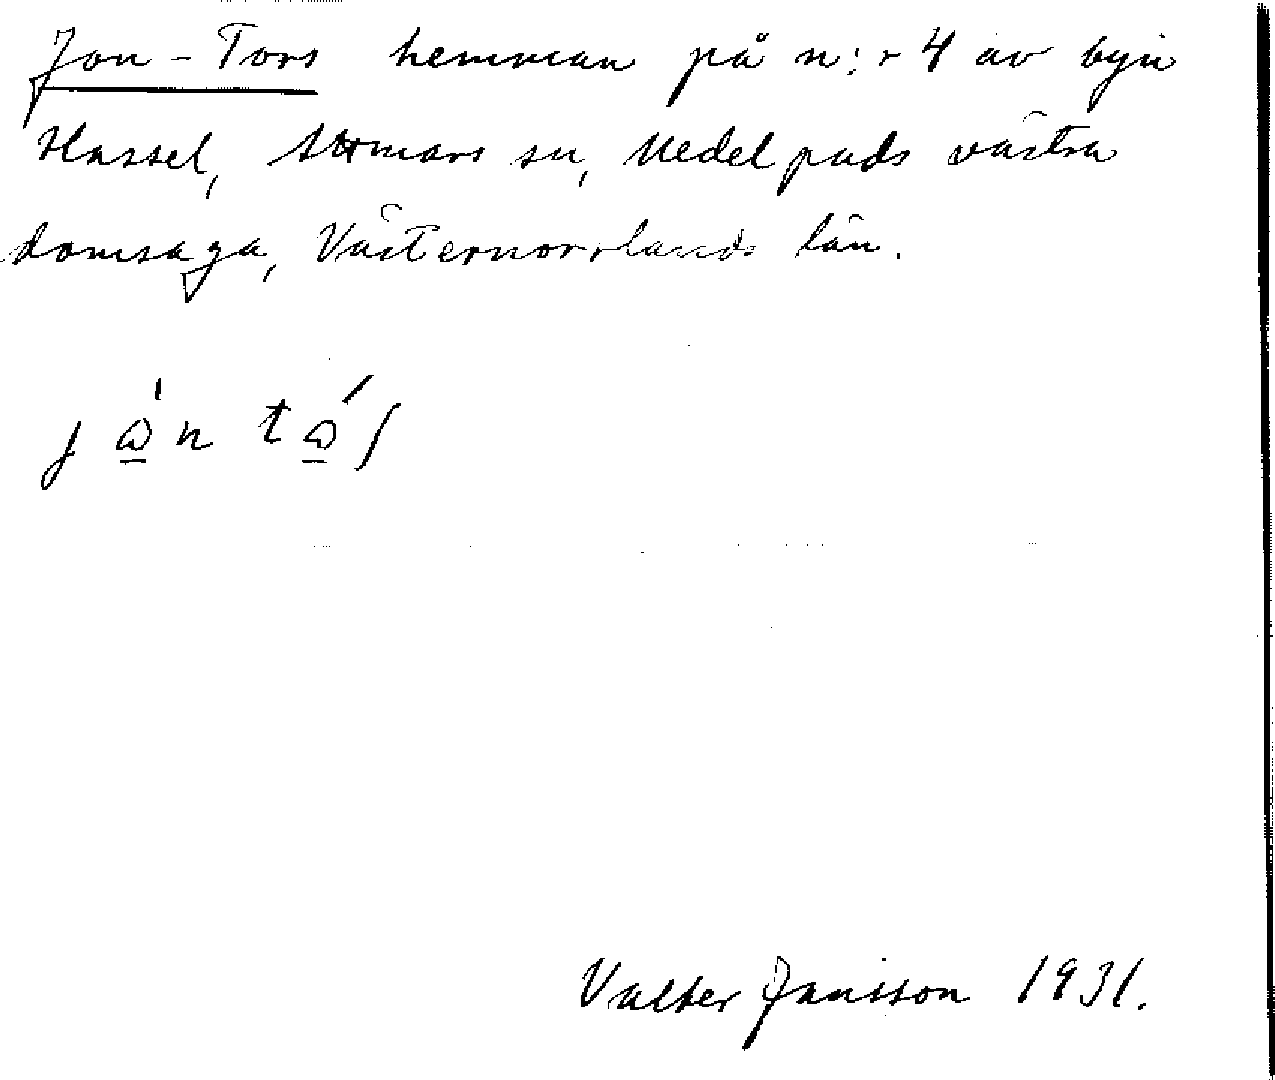 Jon-Tors hemman på n:r 4 av byn
Hassel, Attmars sn, Medelpads västra
domsaga, Västernorrlands län.
Valter Jansson 1931.